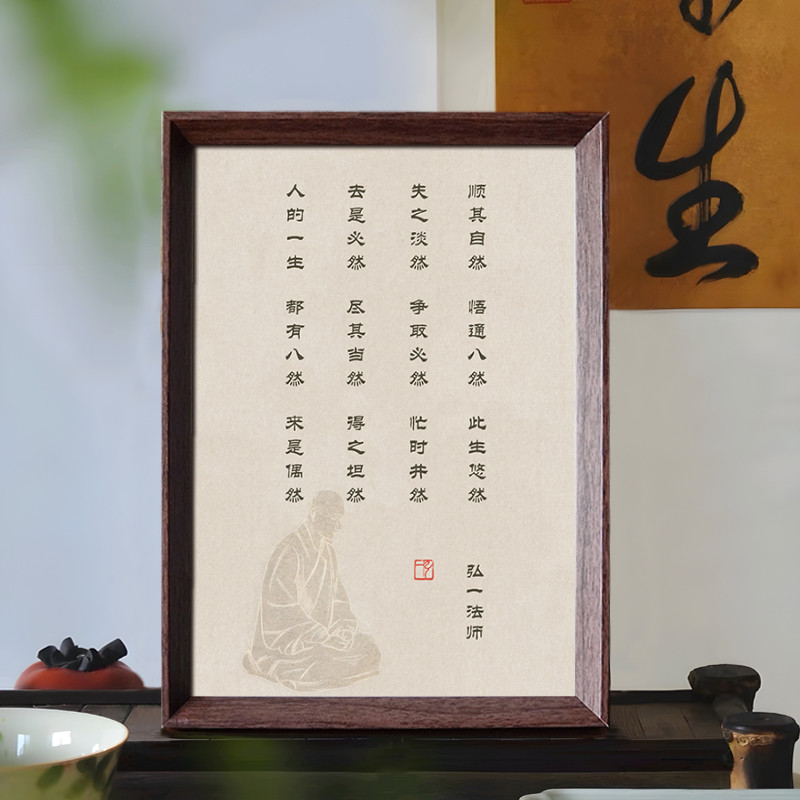 人的一生 都有八然 来是偶然
去是必然 尽其当然 得之坦然
失之淡然 争取必然 忙时井然
顺其自然 悟通八然 此生悠然
弘一法师
生